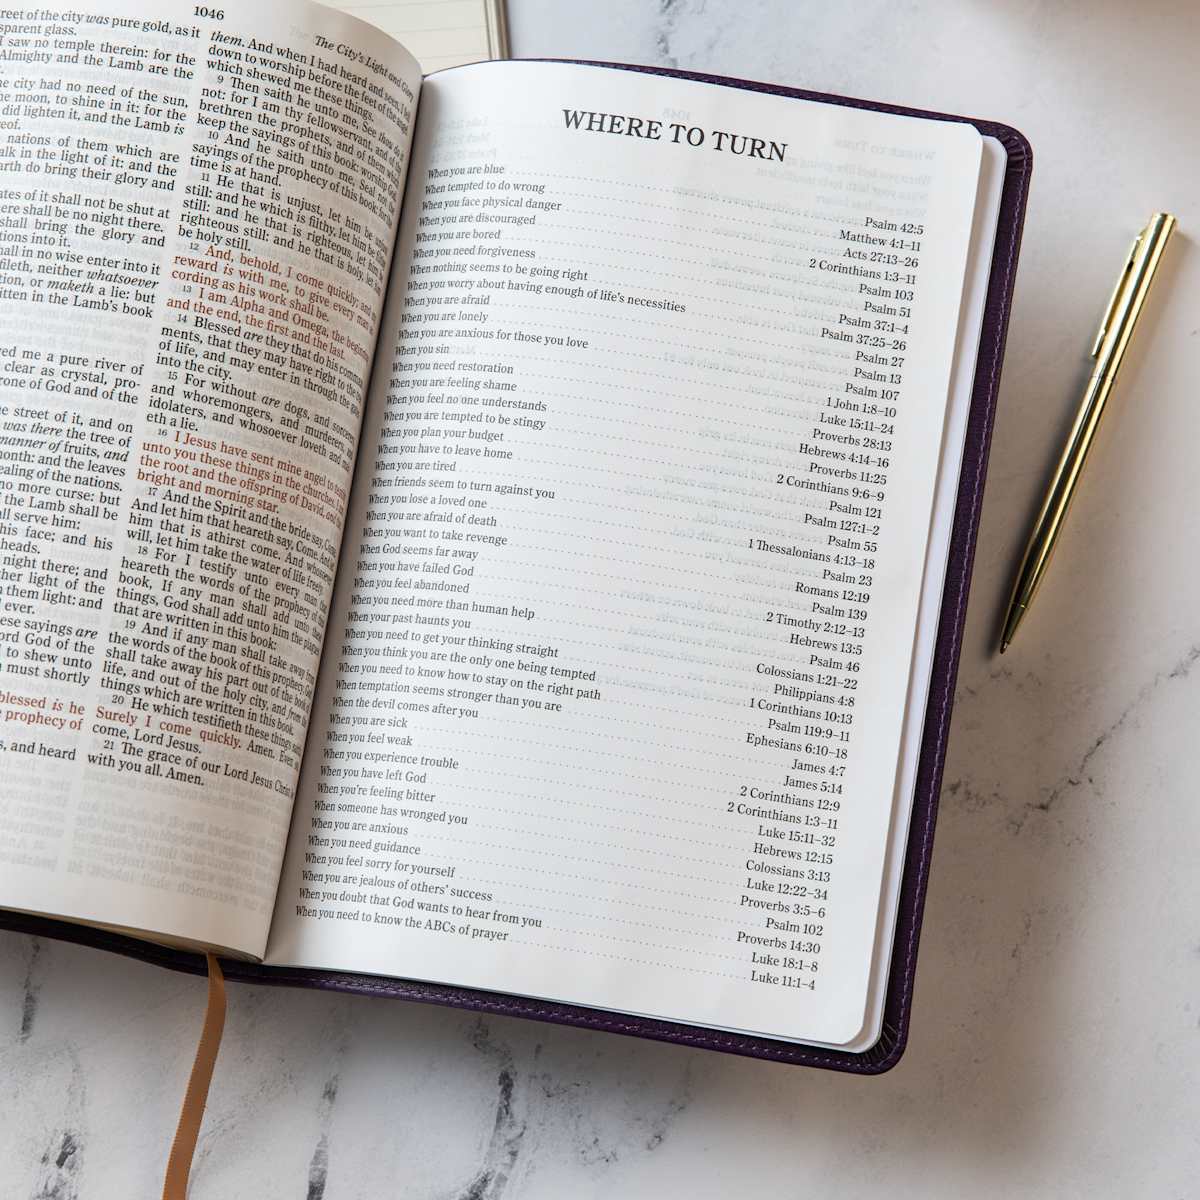 1046
The City's Light and Glory
reet of the city was pure gold, as it
sparent glass.
I saw no temple therein: for the
Almighty and the Lamb are the
he city had no need of the sun,
he moon, to shine in it: for the
did lighten it, and the Lamb is
reof.
nations of them which are
alk in the light of it: and the
arth do bring their glory and
ates of it shall not be shut at
ere shall be no night there.
shall bring the glory and
tions into it.
hall in no wise enter into it
fileth, neither whatsoever
tion, or maketh a lie: but
itten in the Lamb's book
red me a pure river of
clear as crystal, pro-
rone of God and of the
e street of it, and on
was there the tree of
manner of fruits, and
month: and the leaves
ealing of the nations.
no more curse: but
f the Lamb shall be
all serve him:
his face; and his
heads.
night there; and
ther light of the
them light: and
ever.
ese sayings are
ord God of the
to shew unto
must shortly
blessed is he
e prophecy of
s, and heard
them. And when I had heard and seen, I fell
down to worship before the feet of the angel
which shewed me these things.
9 Then saith he unto me, See thou do it
not: for I am thy fellowservant, and of thy
brethren the prophets, and of them which
keep the sayings of this book: worship God.
10 And he saith unto me, Seal not the
sayings of the prophecy of this book: for the
time is at hand.
11 He that is unjust, let him be unjust
still: and he which is filthy, let him be filthy
still: and he that is righteous, let him be
righteous still: and he that is holy, let him
be holy still.
12 And, behold, I come quickly; and my
reward is with me, to give every man ac-
cording as his work shall be.
13 I am Alpha and Omega, the beginning
and the end, the first and the last.
14 Blessed are they that do his command-
ments, that they may have right to the tree
of life, and may enter in through the gates
into the city.
15 For without are dogs, and sorcerers,
and whoremongers, and murderers, and
idolaters, and whosoever loveth and mak-
eth a lie.
16 I Jesus have sent mine angel to testify
unto you these things in the churches. I am
the root and the offspring of David, and the
bright and morning star.
17 And the Spirit and the bride say, Come.
And let him that heareth say, Come. And let
him that is athirst come. And whosoever
will, let him take the water of life freely.
18 For I testify unto every man that
heareth the words of the prophecy of this
book, If any man shall add unto these
things, God shall add unto him the plagues
that are written in this book:
19 And if any man shall take away from
the words of the book of this prophecy, God
shall take away his part out of the book of
life, and out of the holy city, and from the
things which are written in this book.
20 He which testifieth these things saith,
Surely I come quickly. Amen. Even so,
come, Lord Jesus.
21 The grace of our Lord Jesus Christ be
with you all. Amen.
WHERE TO TURN
When you are blue Psalm 42:5
When tempted to do wrong Matthew 4:1–11
When you face physical danger Acts 27:13–26
When you are discouraged 2 Corinthians 1:3–11
When you are bored Psalm 103
When you need forgiveness Psalm 51
When nothing seems to be going right Psalm 37:1–4
When you worry about having enough of life's necessities Psalm 37:25–26
When you are afraid Psalm 27
When you are lonely Psalm 13
When you are anxious for those you love Psalm 107
When you sin 1 John 1:8–10
When you need restoration Luke 15:11–24
When you are feeling shame Proverbs 28:13
When you feel no one understands Hebrews 4:14–16
When you are tempted to be stingy Proverbs 11:25
When you plan your budget 2 Corinthians 9:6–9
When you have to leave home Psalm 121
When you are tired Psalm 127:1–2
When friends seem to turn against you Psalm 55
When you lose a loved one 1 Thessalonians 4:13–18
When you are afraid of death Psalm 23
When you want to take revenge Romans 12:19
When God seems far away Psalm 139
When you have failed God 2 Timothy 2:12–13
When you feel abandoned Hebrews 13:5
When you need more than human help Psalm 46
When your past haunts you Colossians 1:21–22
When you need to get your thinking straight Philippians 4:8
When you think you are the only one being tempted 1 Corinthians 10:13
When you need to know how to stay on the right path Psalm 119:9–11
When temptation seems stronger than you are Ephesians 6:10–18
When the devil comes after you James 4:7
When you are sick James 5:14
When you feel weak 2 Corinthians 12:9
When you experience trouble 2 Corinthians 1:3–11
When you have left God Luke 15:11–32
When you're feeling bitter Hebrews 12:15
When someone has wronged you Colossians 3:13
When you are anxious Luke 12:22–34
When you need guidance Proverbs 3:5–6
When you feel sorry for yourself Psalm 102
When you are jealous of others' success Proverbs 14:30
When you doubt that God wants to hear from you Luke 18:1–8
When you need to know the ABCs of prayer Luke 11:1–4